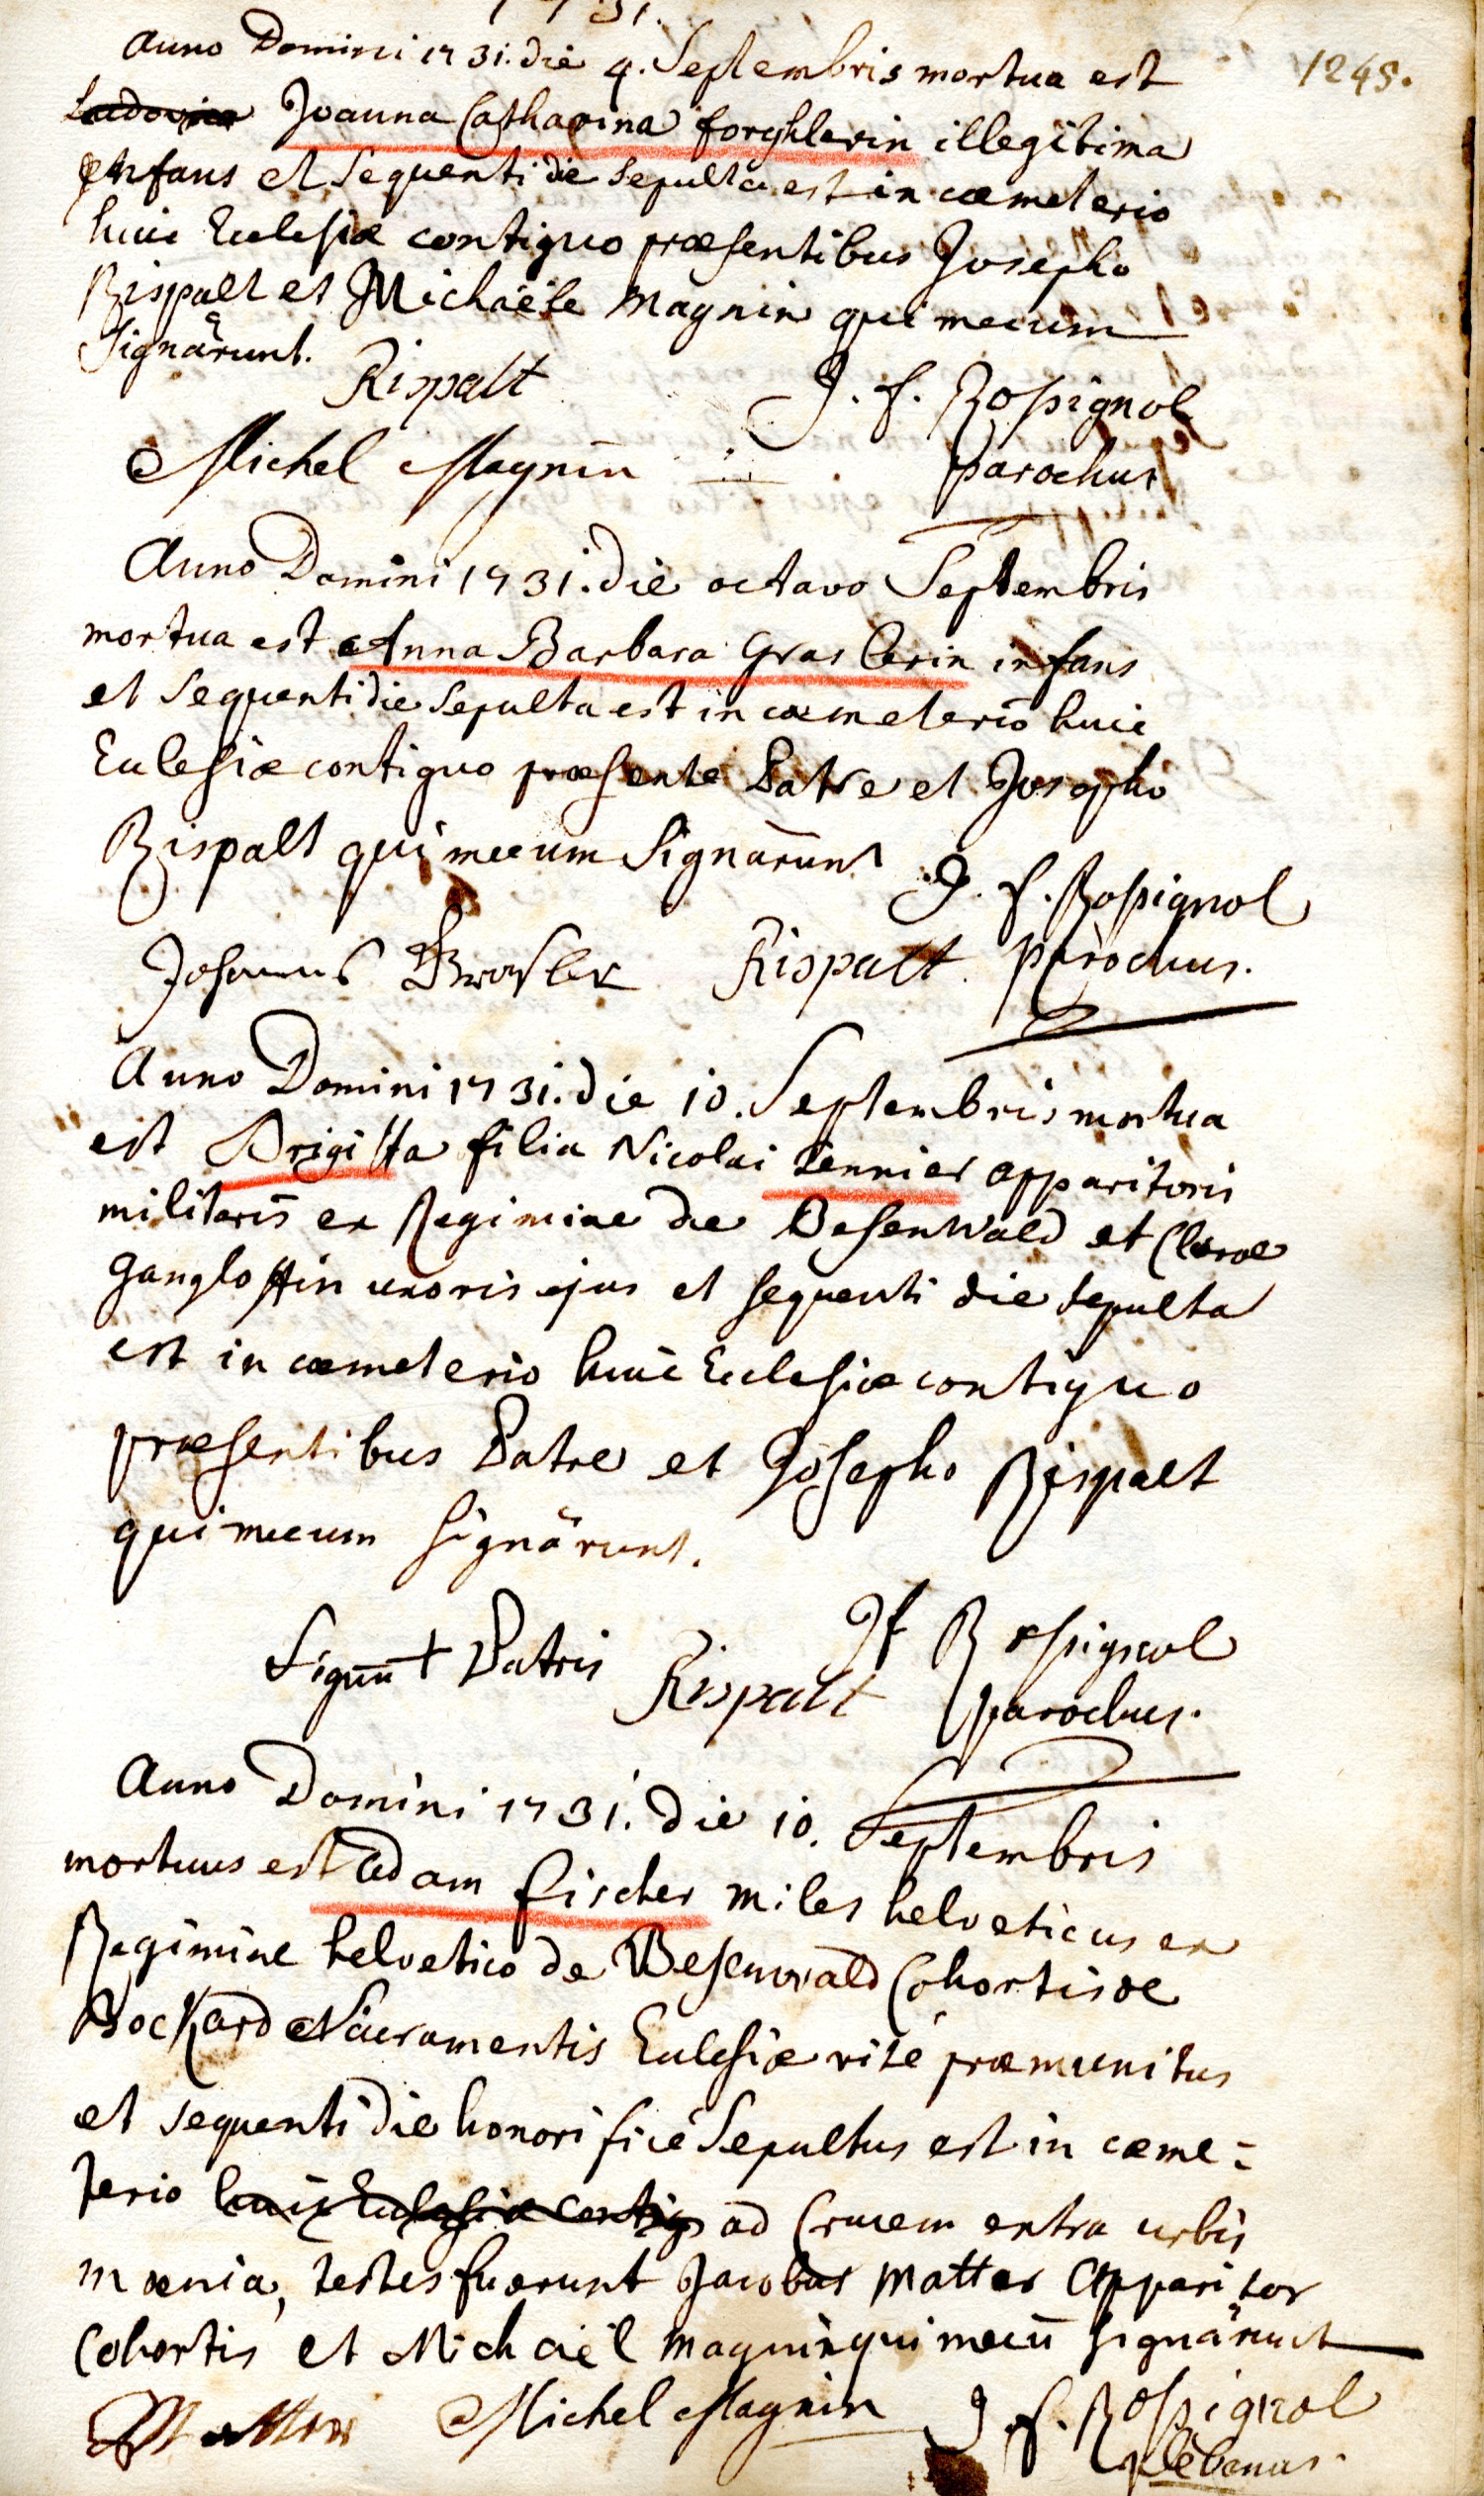 1731.
1245.
Anno Domini 1731. die 4. Septembris mortua est
Ludovica Joanna Catharina forghlerin illegitima
Enfans et sequenti die sepulta est in cœmeterio
huic Ecclesiæ contiguo præsentibus Josepho
Rispalt et Michaële Magnin qui mecum
signârunt.
Rispalt J. f. Rossignol
Michel Magnin parochus
Anno Domini 1731. die octavo Septembris
mortua est Anna Barbara Graslerin infans
et sequenti die sepulta est in cœmeterio huic
Ecclesiæ contiguo præsente Patre et Josepho
Rispalt qui mecum signârunt J. f. Rossignol
Johannes Rispalt parochus.
Anno Domini 1731. die 10. Septembris mortua
est Brigitta filia Nicolai Lennier apparitoris
militaris ex Regimine de Besenwald et Claræ
Gangloffin uxoris ejus et sequenti die sepulta
est in cœmeterio huic Ecclesiæ contiguo
præsentibus Patre et Josepho Rispalt
qui mecum signârunt.
Signū + Patris Rispalt Jf Rossignol
parochus.
Anno Domini 1731. die 10. Septembris
mortuus est adam fischer miles helveticus ex
Regimine helvetico de Besenwald Cohortis de
Bockard Sacramentis Ecclesiæ ritè præmunitus
et sequenti die honorificè sepultus est in cœme=
terio huic Ecclesiæ contig ad Crucem extra urbis
mœnia, testes fuerunt Jacobus Matter Apparitor
Cohortis et Michaël magnin qui mecū signârunt
Matter Michel Magnin J. f. Rossignol
plebanus.